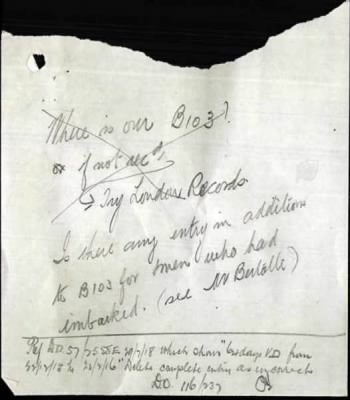 Where is our B103?
or if not rec'd,
→ Try London Records
Is there any entry in addition
to B103 for men who had
embarked. (see Mr Bertolle)
Ref D.O. 57/2555E 20/7/18 which shows "6 days VD from
to "Delete complete entry as incorrect
D.O. 116/237